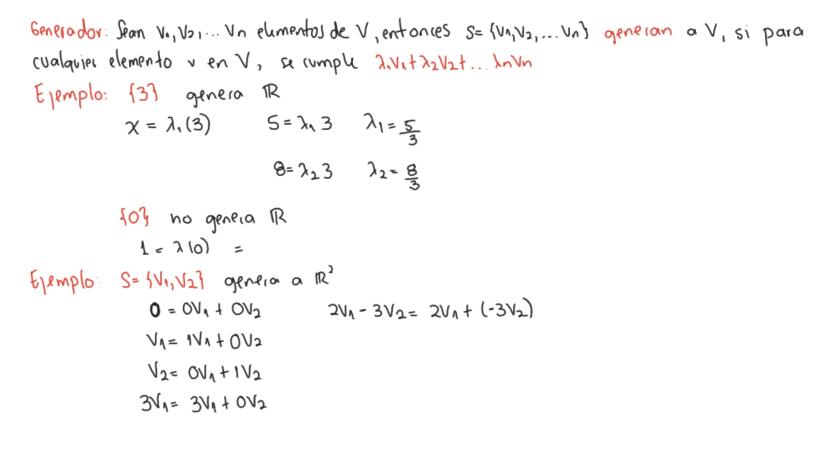 Generador: Sean V₁, V₂, ... Vn elementos de V, entonces S = {V₁, V₂, ... Vn} generan a V, si para
cualquier elemento v en V, se cumple λ₁V₁ + λ₂V₂ + ... λnVn
Ejemplo: {3} genera ℝ
x = λ₁(3) 5 = λ₁3 λ₁ = 5/3
8 = λ₂3 λ₂ = 8/3
{0} no genera ℝ
1 = λ(0) =
Ejemplo: S = {V₁, V₂} genera a ℝ²
0 = 0V₁ + 0V₂ 2V₁ - 3V₂ = 2V₁ + (-3V₂)
V₁ = 1V₁ + 0V₂
V₂ = 0V₁ + 1V₂
3V₁ = 3V₁ + 0V₂